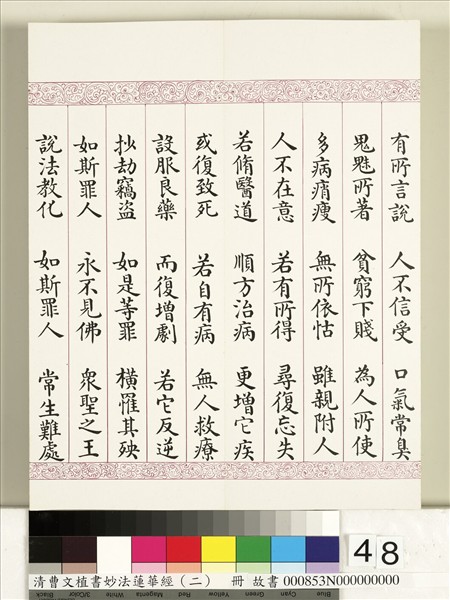 有所言說 人不信受 口氣常臭
鬼魅所著 貧窮下賤 為人所使
多病痟瘦 無所依怙 雖親附人
人不在意 若有所得 尋復忘失
若脩醫道 順方治病 更增它疾
或復致死 若自有病 無人救療
設服良藥 而復增劇 若它反逆
抄劫竊盜 如是等罪 橫罹其殃
如斯罪人 永不見佛 衆聖之王
說法教化 如斯罪人 常生難處
48
清曹文植書妙法蓮華經(二) 冊 故書 000853N000000000
Black 3/Color White Magenta Red Yellow Green Cyan Blue